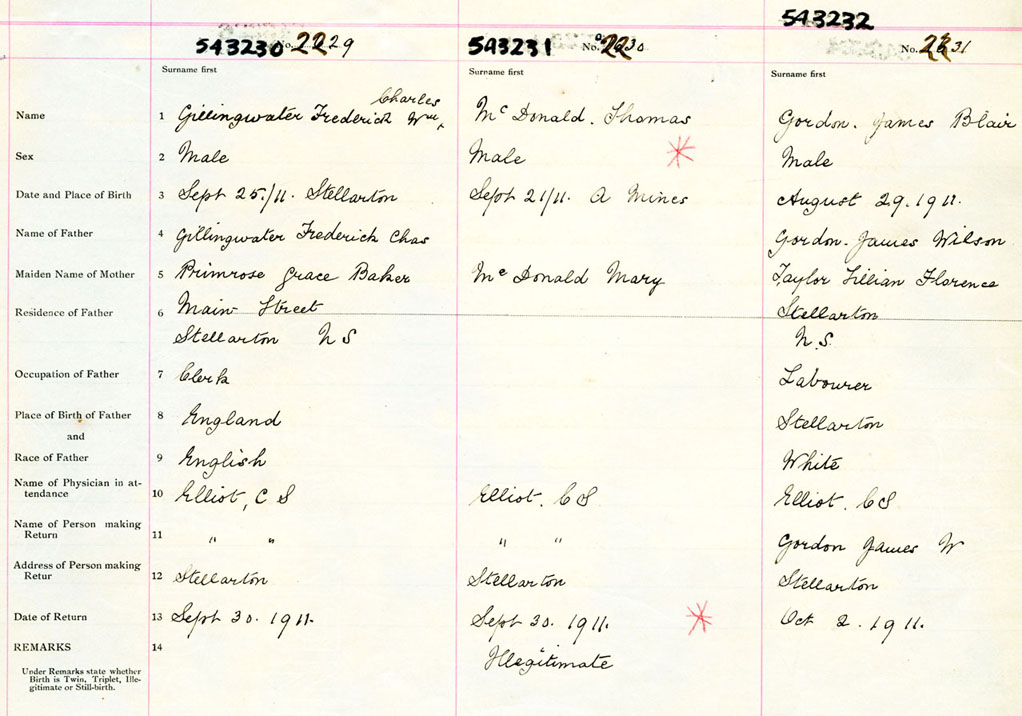 543232
543230 No. 2229
543231 No. 2230
No. 2231
Surname first
Surname first
Surname first
Charles
Name 1 Gillingwater Frederick Wm, Mc Donald. Thomas Gordon. James Blair
Sex 2 Male Male Male
Date and Place of Birth 3 Sept 25./11. Stellarton Sept 21/11. A Mines August 29. 1911.
Name of Father 4 Gillingwater Frederick Chas Gordon. James Wilson
Maiden Name of Mother 5 Primrose Grace Baker Mc Donald Mary Taylor Lillian Florence
Residence of Father 6 Main Street Stellarton
Stellarton N S N.S.
Occupation of Father 7 Clerk Labourer
Place of Birth of Father 8 England Stellarton
and
Race of Father 9 English White
Name of Physician in at-
tendance 10 Elliot, C S Elliot. C S Elliot. C S
Name of Person making
Return 11 " " " " Gordon James W
Address of Person making
Retur 12 Stellarton Stellarton Stellarton
Date of Return 13 Sept 30. 1911. Sept 30. 1911. Oct 2. 1911.
REMARKS 14 Illegitimate
Under Remarks state whether
Birth is Twin, Triplet, Ille-
gitimate or Still-birth.